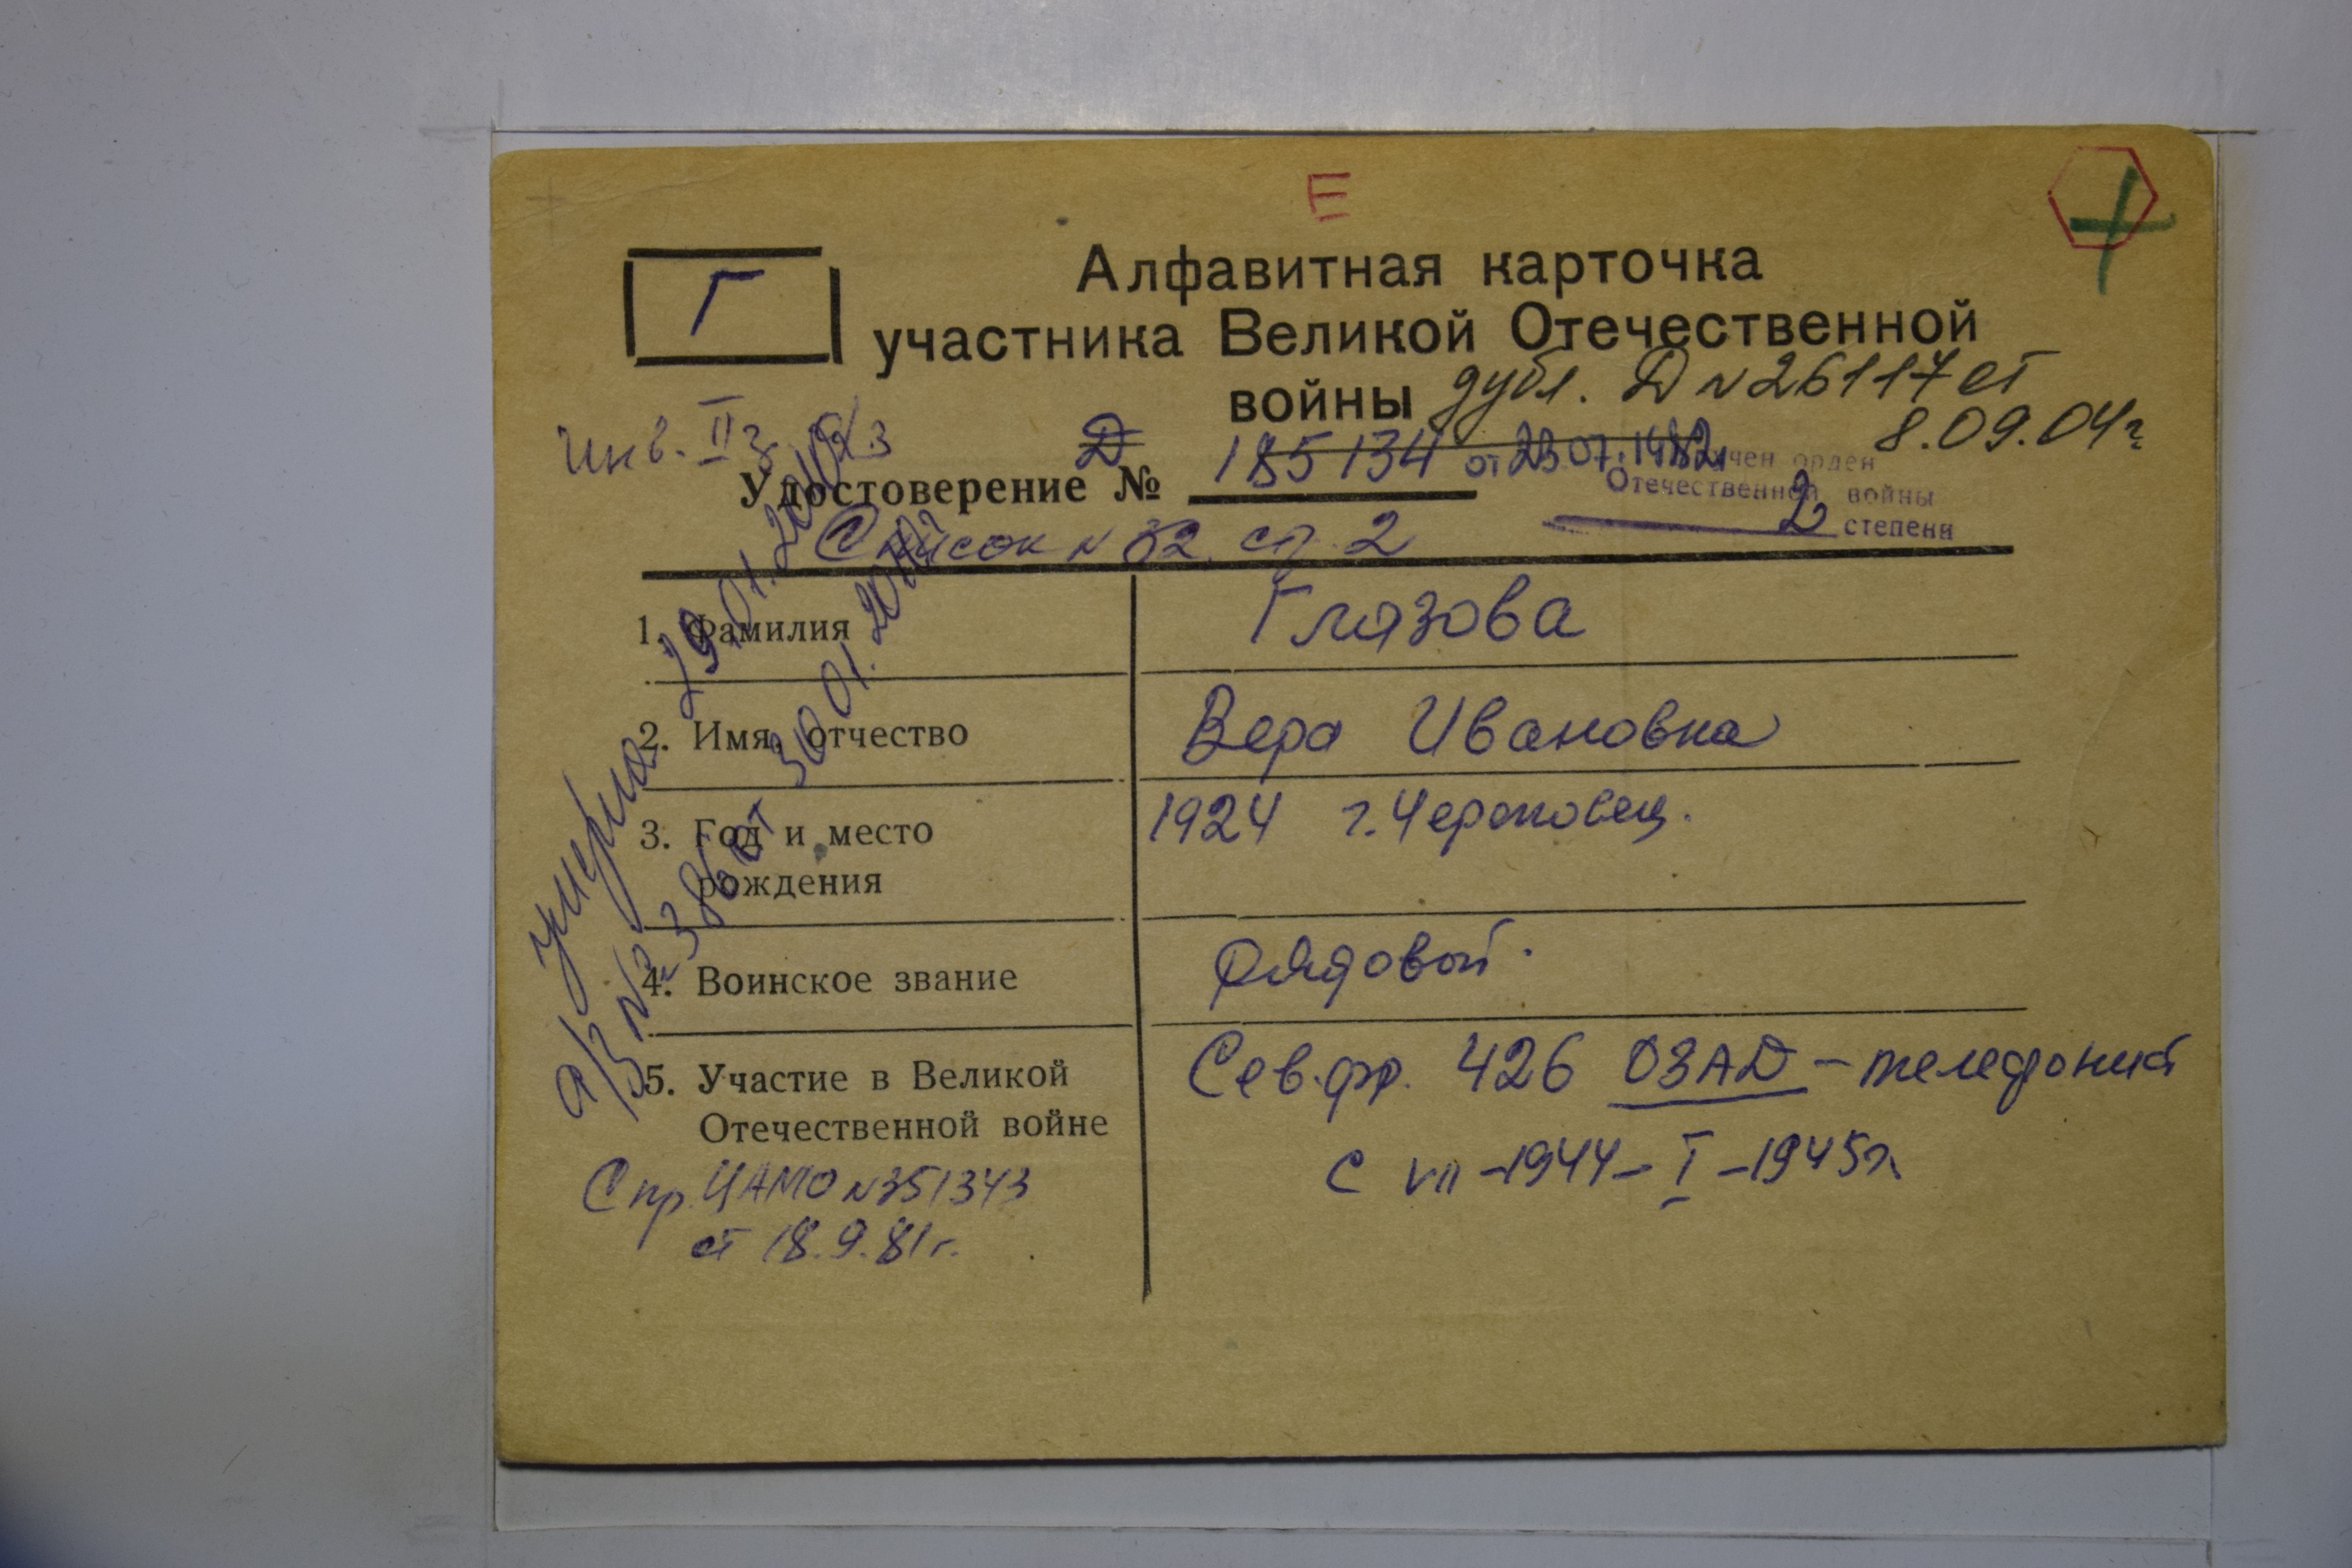 Е
Г
Алфавитная карточка
участника Великой Отечественной
войны
дубл. Д N 26117 от
8.09.04г
Инв. II з
Д
Удостоверение № 185134 от 23.07.1982
Вручен орден
Отечественной войны
2 степени
Список N 82 ст. 2
1. Фамилия
Глазова
2. Имя, отчество
Вера Ивановна
3. Год и место
рождения
1924 г. Череповец.
4. Воинское звание
рядовой.
5. Участие в Великой
Отечественной войне
Сев. фр. 426 ОЗАД – телефонист
с VII – 1944 – I – 1945г.
Спр. ЦАМО N 351343
от 18.9.81г.
умерла 29.01.2010
а/з № 386 от 30.01.2010